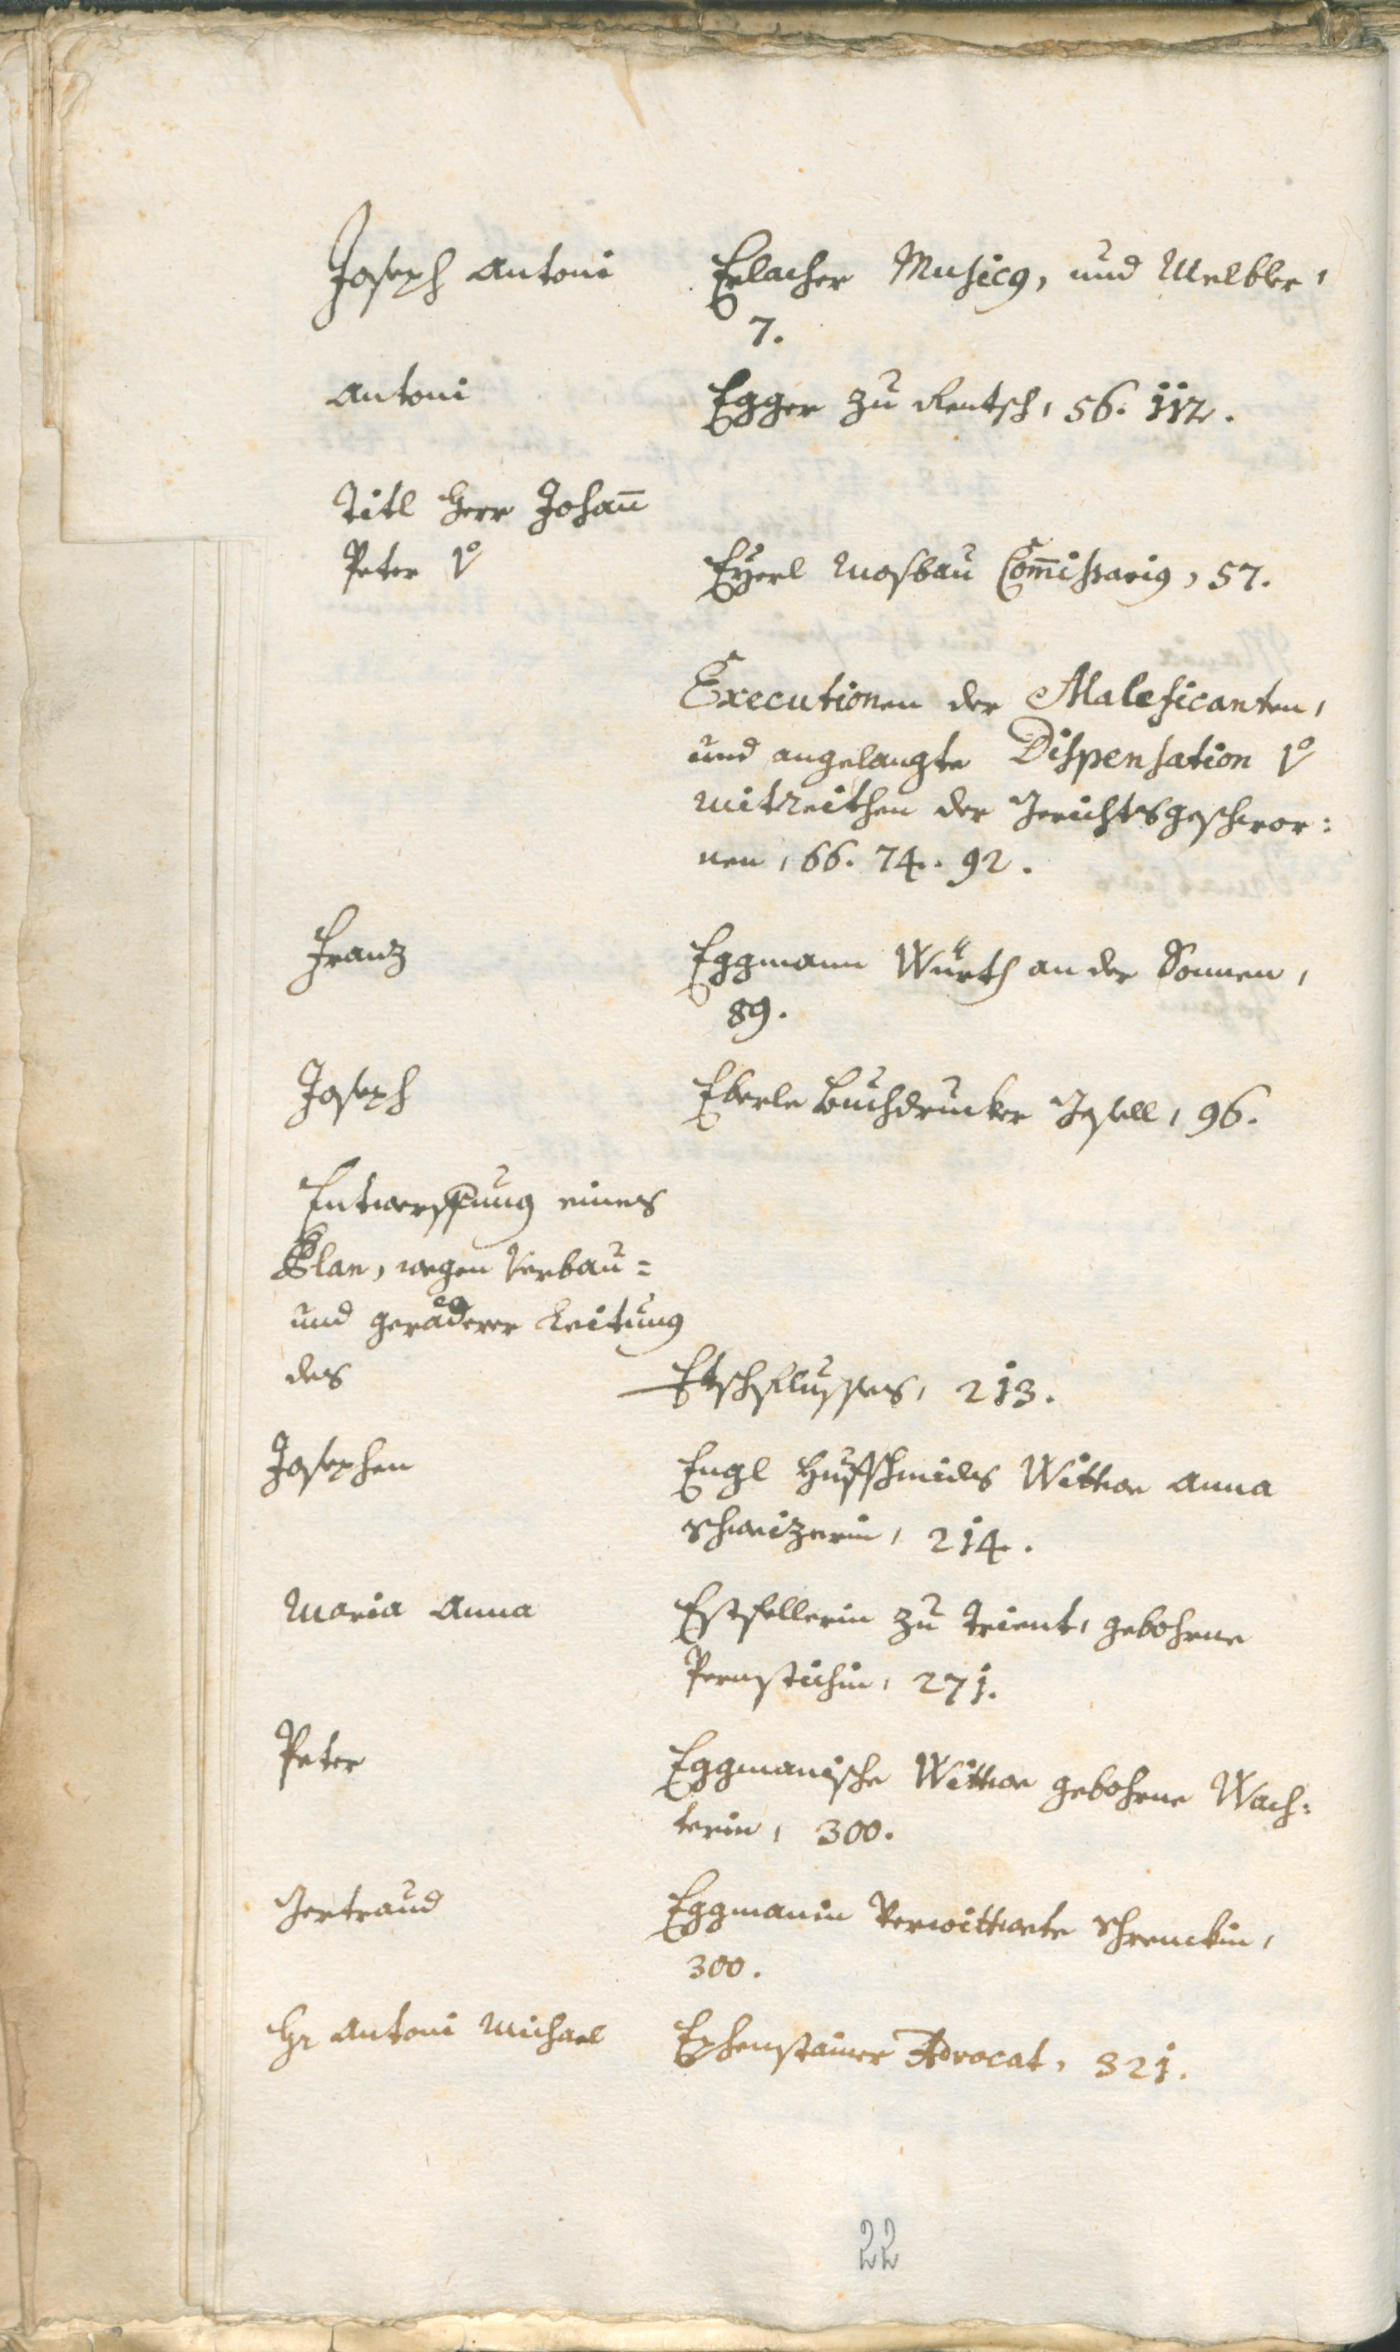 Joseph Antoni Erlacher Musicus, und Melbler,
7.
Antoni Egger zu Rentsch, 56. 112.
Titl Herr Johann
Peter v Eyerl Mosbau Commissarius, 57.
Executionen der Maleficanten,
und angelangte Dispensation vo
mitreithen der Gerichtsgeschwor:
nen, 66. 74. 92.
Franz Eggmann Würth an der Sonnen,
89.
Joseph Eberle Buchdrucker Gesell, 96.
Entwerffung eines
Plan, wegen Verbau=
und geräderer Leitung
des Etschflusses, 213.
Josephen Engl Huffschmides Wittwe Anna
Schweizerin, 214.
Maria Anna zu Trient, gebohrne
271.
Peter Eggmanische Wittwe gebohrne Wach:
terin, 300.
Gertraud Eggmanin Verwittwete Schrenckin,
300.
Hr Antoni Michael Ephenstainer Advocat, 321.
22